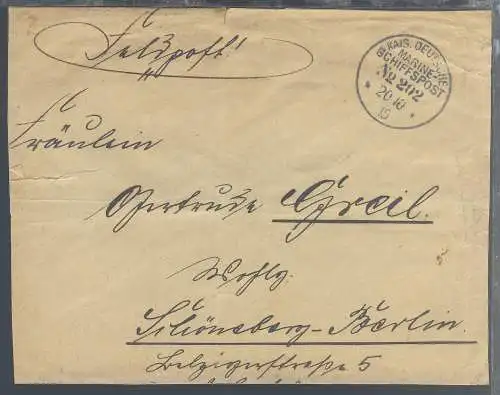 Feldpost!
KAIS. DEUTSCHE
MARINE-
SCHIFFSPOST
No 202
* 20 10 *
15
Fräulein
Gertrude Greil.
Wohlg.
Schöneberg-Berlin.
Belzigerstraße 5